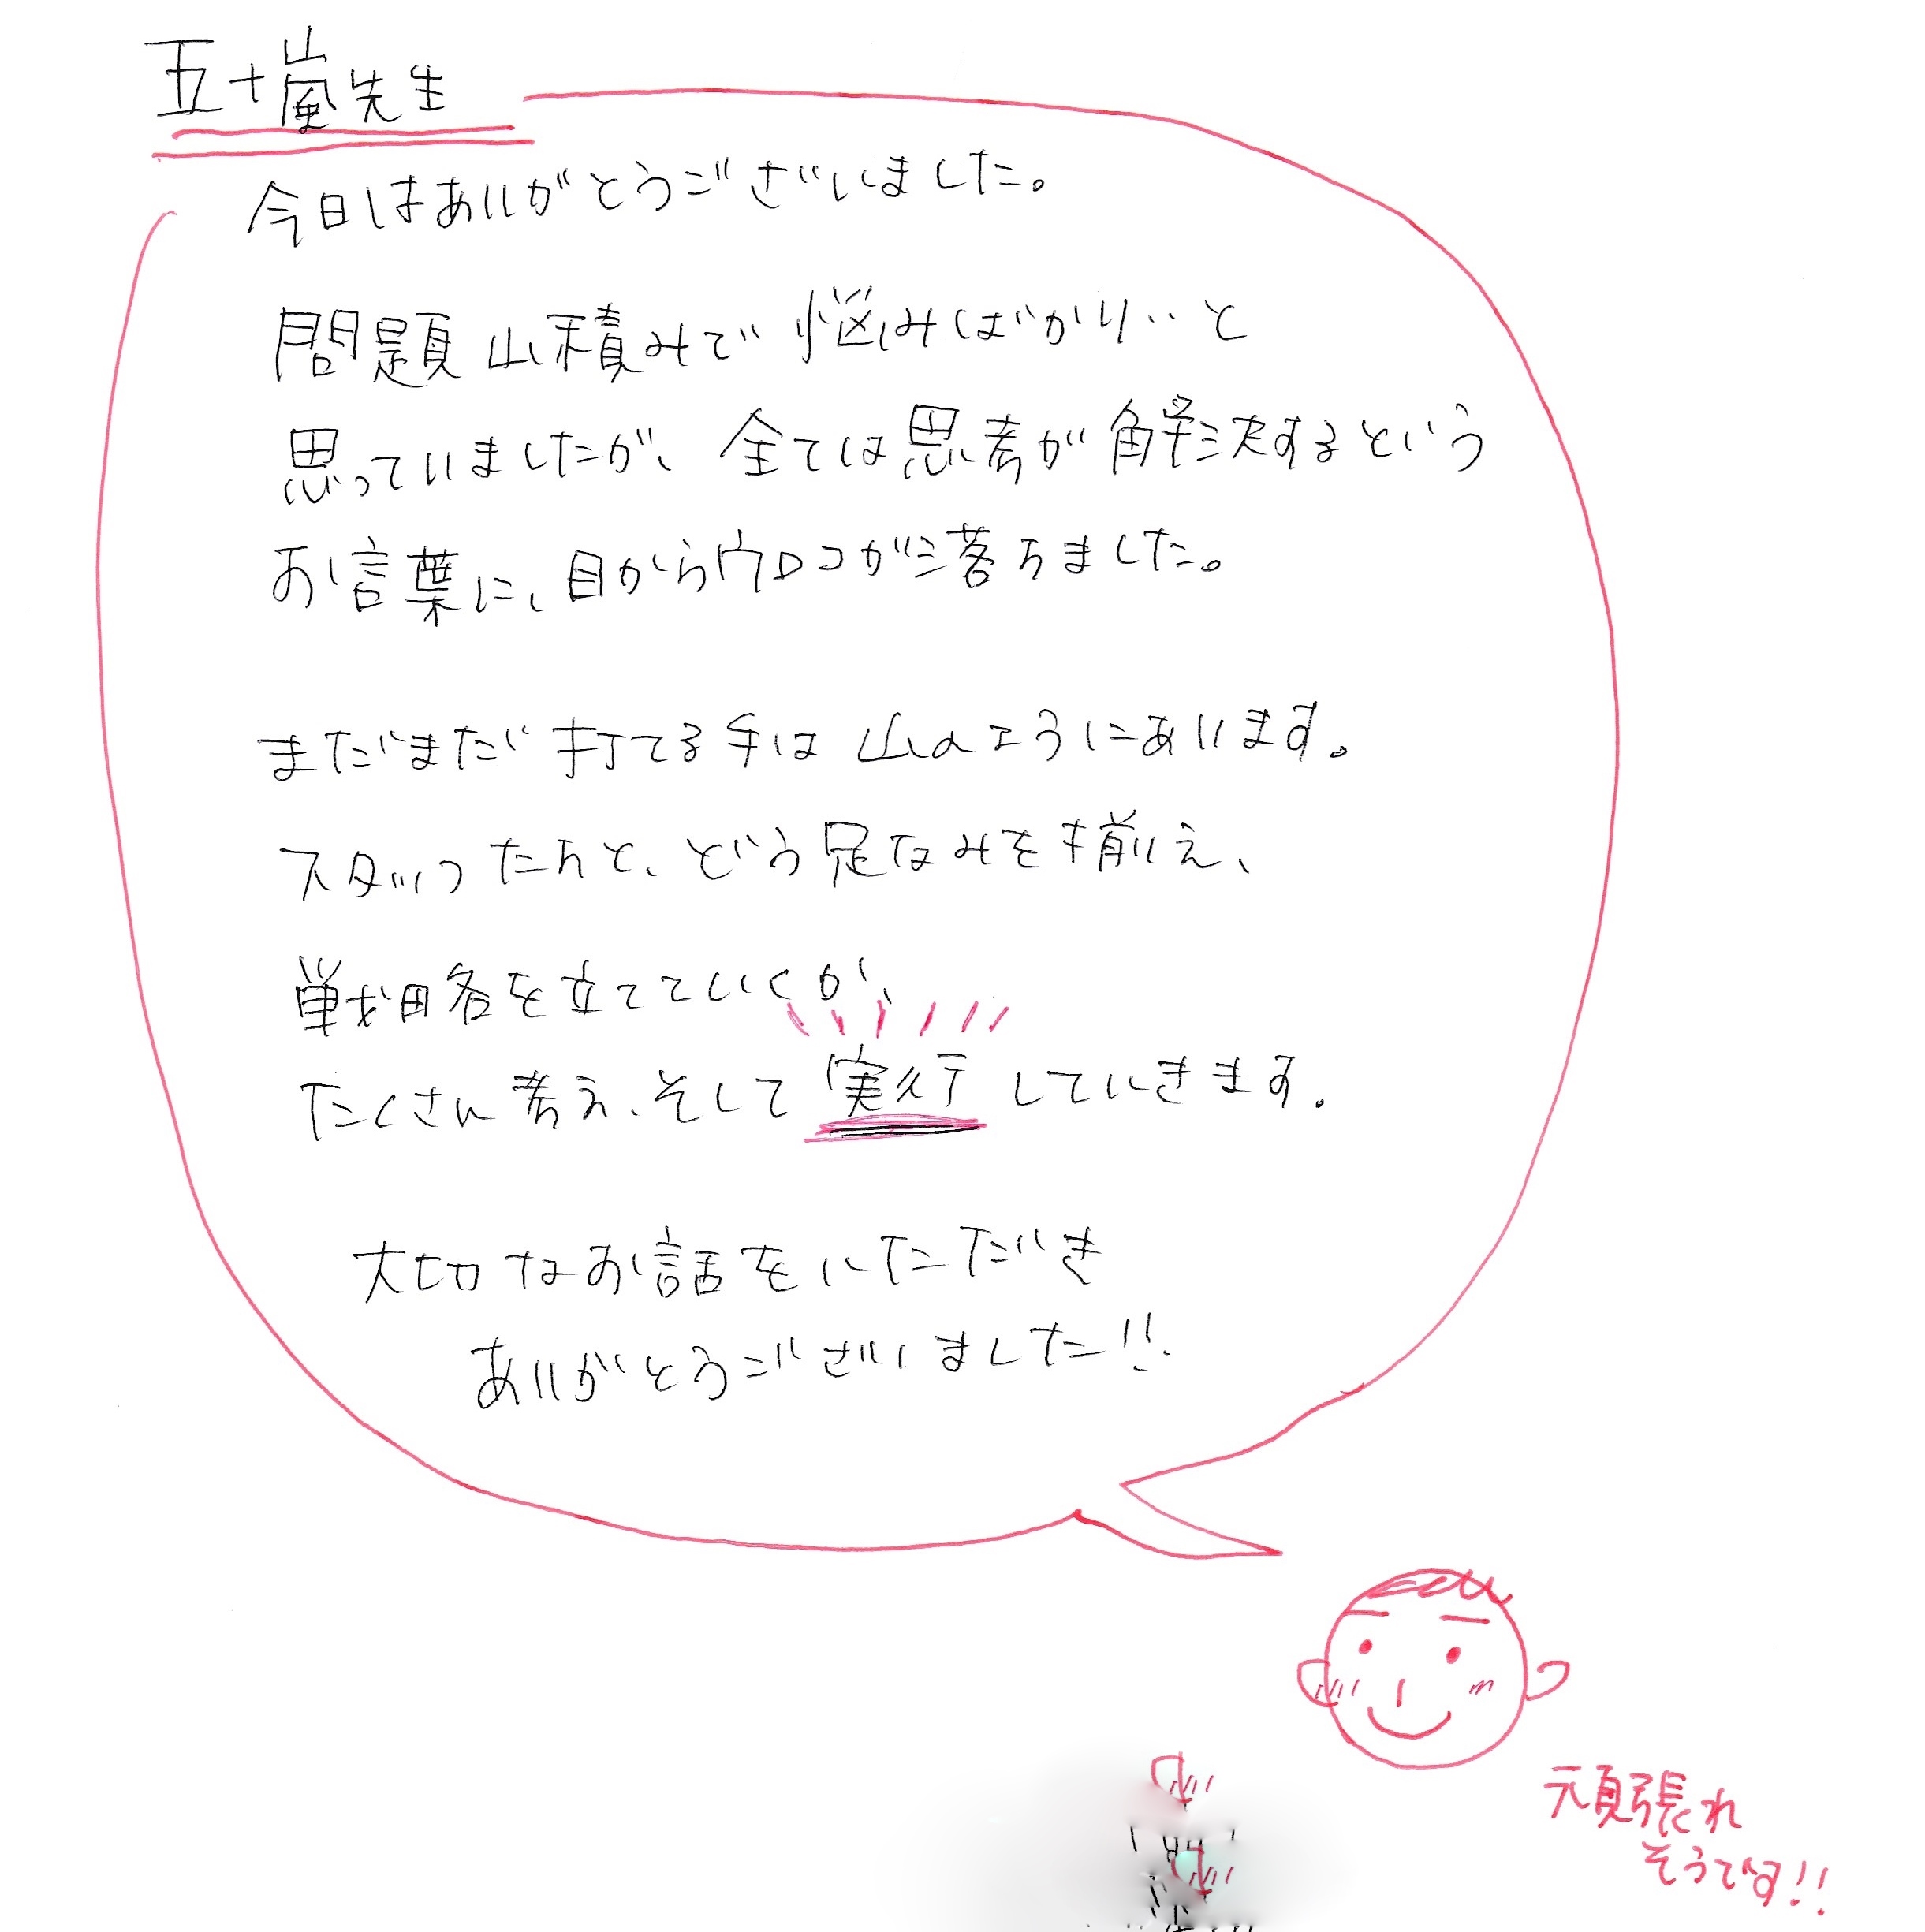 五十嵐先生
今日はありがとうございました。
問題山積みで悩みばかり‥と
思っていましたが、全ては思考が解決するという
お言葉に、目からウロコが落ちました。
まだまだ打てる手は山のようにあります。
スタッフたちと、どう足なみを揃え、
戦略を立てていくか、
たくさん考え、そして実行していきます。
大切なお話をいただき
ありがとうございました!!
頑張れ
そうです!!